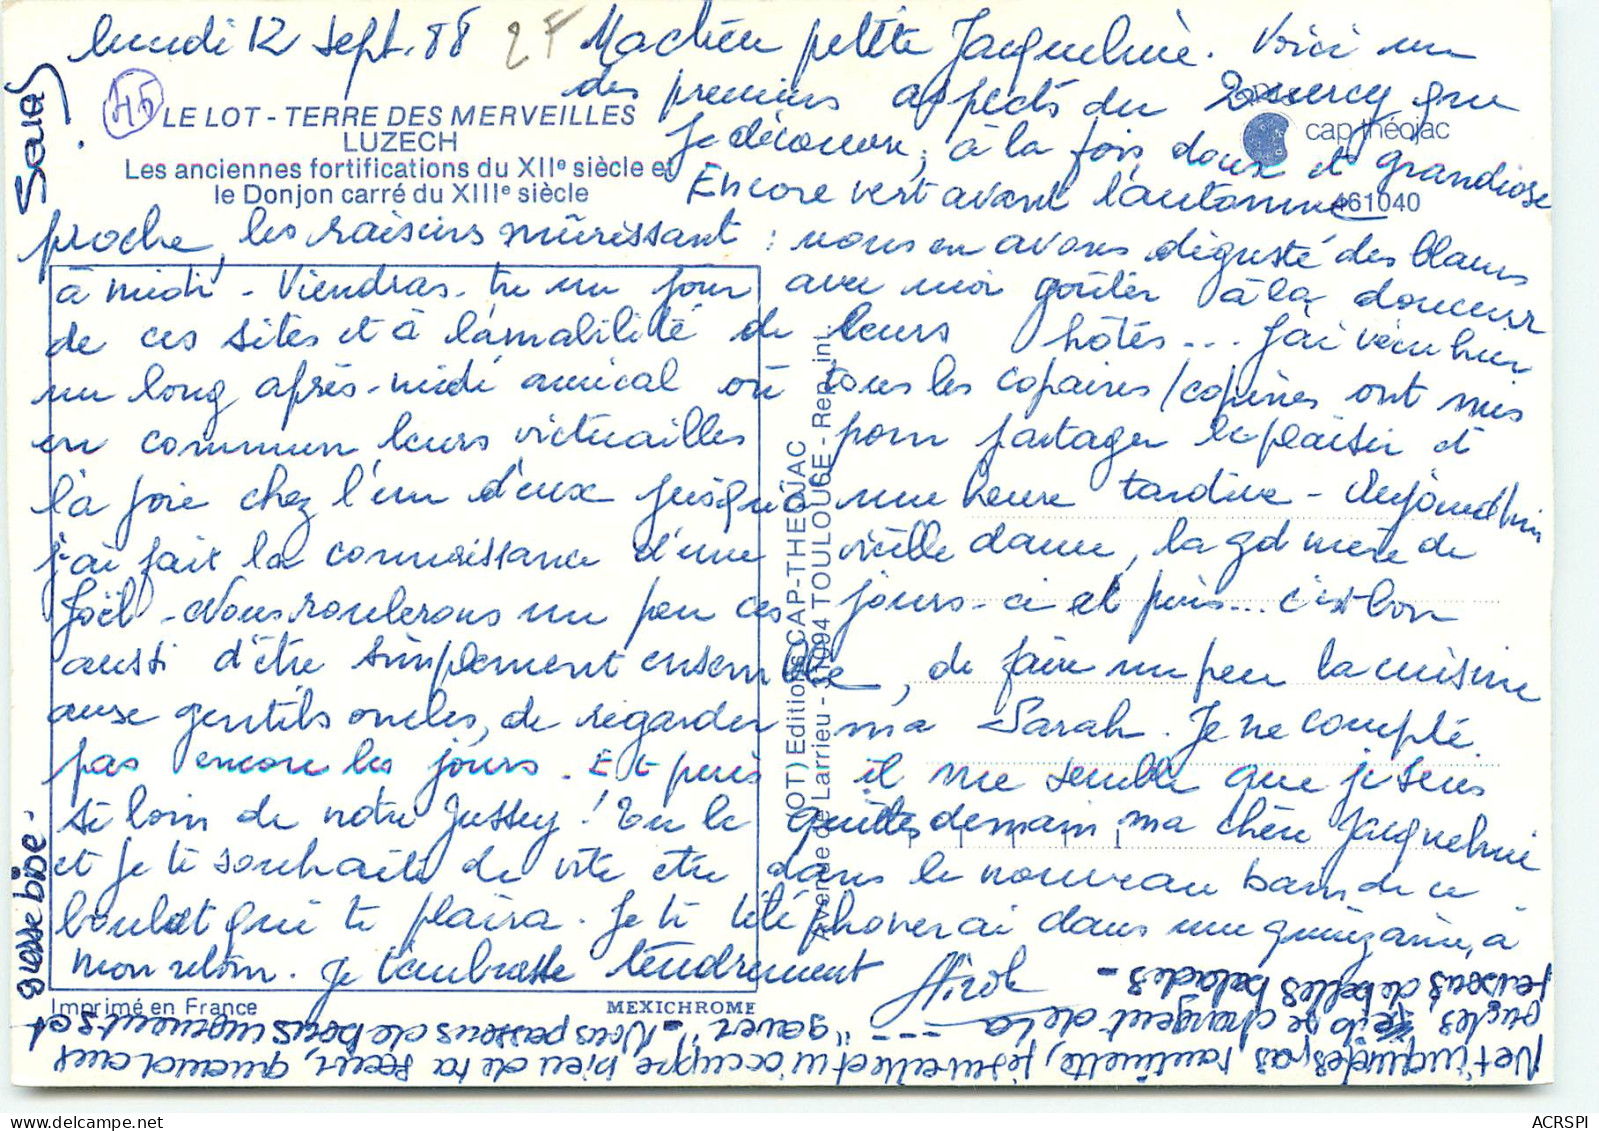 lundi 12 sept. 88 2F Ma chère petite Jacqueline. Voici un
des premiers aspects du Quercy que
je découvre, à la fois doux et grandiose
Encore vert avant l'automne
proche, les raisins mûrissant : nous en avons dégusté des blancs
à midi - Viendras-tu un jour avec moi goûter à la douceur
de ces sites et à l'amabilité de leurs hôtes... J'ai vécu hier
un long après-midi amical où tous les copains/copines ont mis
en commun leurs victuailles pour partager le plaisir et
la joie chez l'un d'eux jusqu'à une heure tardive - Aujourd'hui
j'ai fait la connaissance d'une vieille dame, la gd mère de
Joël - Nous roulerons un peu ces jours-ci et puis... c'est bon
aussi d'être simplement ensemble, de faire un peu la cuisine
aux gentils oncles, de regarder ma Sarah. Je ne compte
pas encore les jours. Et puis il me semble que je suis
si loin de notre Jussey ! Tu le quittes demain, ma chère Jacqueline
et je te souhaite de vite être dans le nouveau bain de ce
boulot qui te plaira. Je te téléphonerai dans une quinzaine, à
mon retour. Je t'embrasse tendrement
Ne t'inquiètes pas, je surveille et m'occupe bien de ta soeur, quand aux
ongles, ils se chargent de la --- "gaver". Nous passons de bons moments et
faisons de belles balades -
grosse bise.
45
LE LOT - TERRE DES MERVEILLES
LUZECH
Les anciennes fortifications du XIIe siècle et
le Donjon carré du XIIIe siècle
cap théojac
461040
(LOT) Editions CAP-THEOJAC
Avenue de Larrieu - 31094 TOULOUSE - Rep. int.
Imprimé en France
MEXICHROME
ACRSPI